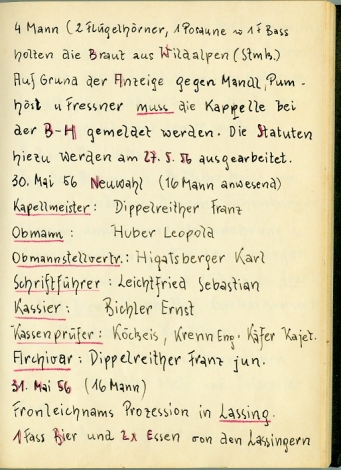 4 Mann (2 Flügelhörner, 1 Posaune u 1 F Bass
holten die Braut aus Wildalpen (Stmk.)
Auf Grund der Anzeige gegen Mandl, Pum-
höst u Fressner muss die Kappelle bei
der B-H gemeldet werden. Die Statuten
hiezu werden am 27. 5. 56 ausgearbeitet.
30. Mai 56 Neuwahl (16 Mann anwesend)
Kapellmeister: Dippelreither Franz
Obmann: Huber Leopold
Obmannstellvertr.: Higatsberger Karl
Schriftführer: Leichtfried Sebastian
Kassier: Bichler Ernst
Kassenprüfer: Köckeis, Krenn Eng. Käfer Kajet.
Archivar: Dippelreither Franz jun.
31. Mai 56 (16 Mann)
Fronleichnams Prozession in Lassing.
1 Fass Bier und 2x Essen von den Lassingern